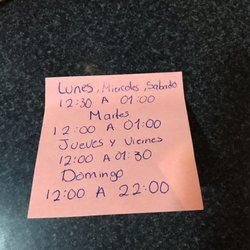 Lunes, Miercoles, Sabado
12:30 A 01:00
Martes
12:00 A 01:00
Jueves y Viernes
12:00 A 01:30
Domingo
12:00 A 22:00